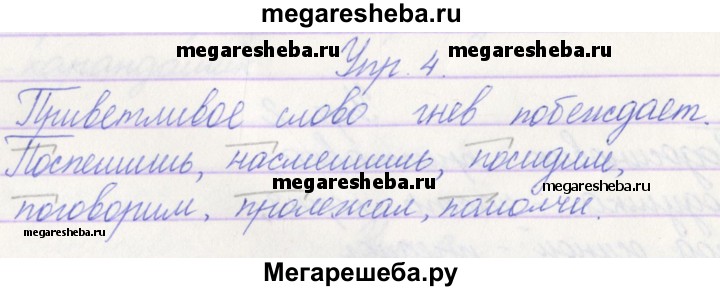 megaresheba.ru
megaresheba.ru megaresheba.ru
Упр. 4.
Приветливое слово гнев побеждает.
Поспешишь, насмешишь, посидим,
megaresheba.ru
поговорим, пролежал, помолчи.
megaresheba.ru megaresheba.ru
Мегарешеба.ру